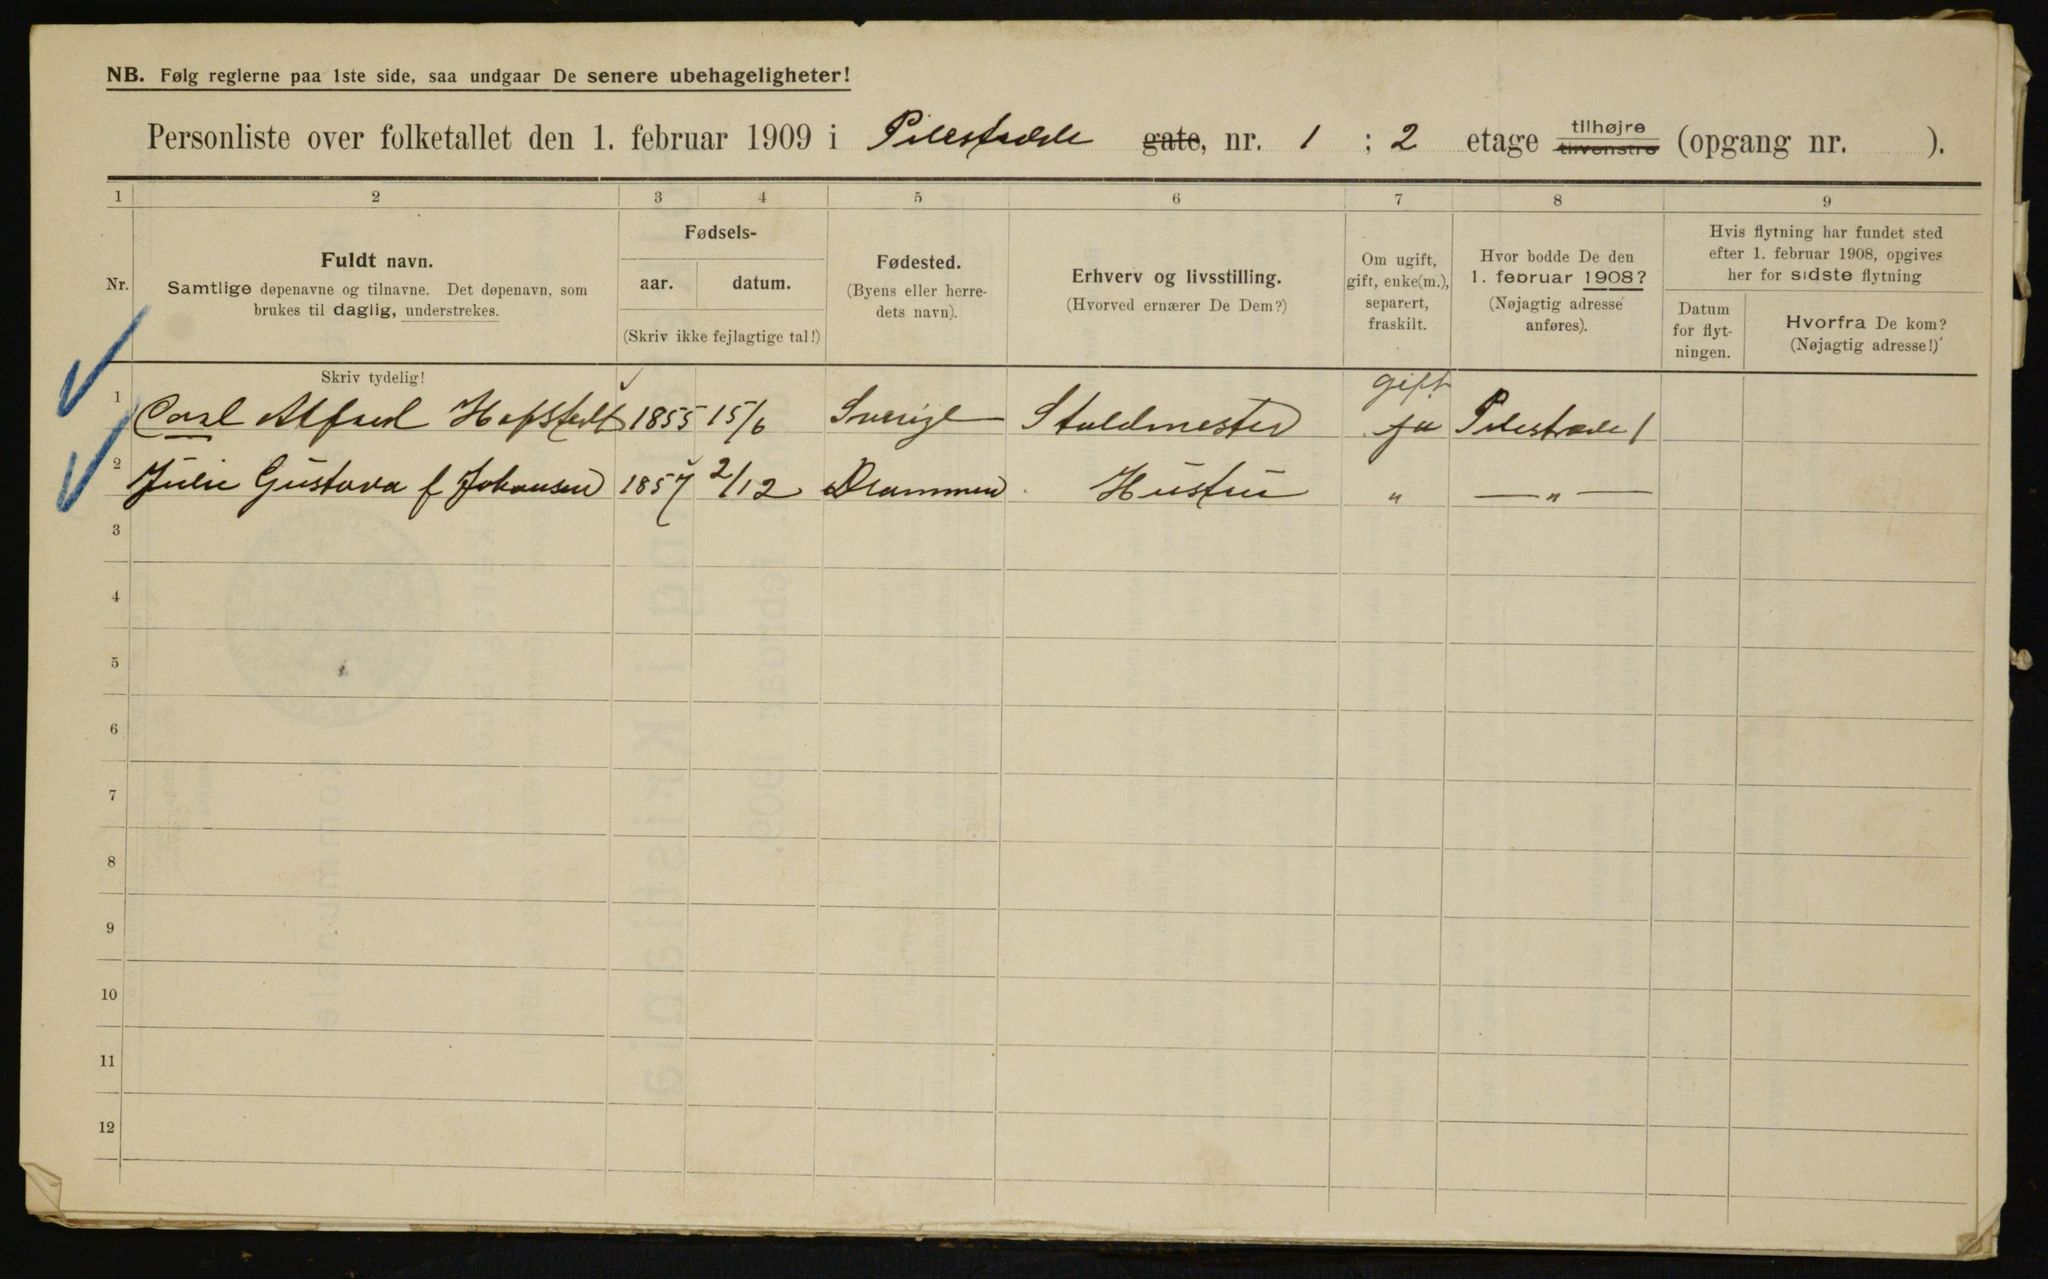 NB. Følg reglerne paa 1ste side, saa undgaar De senere ubehageligheter!
Personliste over folketallet den 1. februar 1909 i Pilestrædе gate, nr. 1 ; 2 etage tilhøjre tilvenstre (opgang nr. ).
1 2 3 4 5 6 7 8 9
Nr.
Fuldt navn.
Samtlige døpenavne og tilnavne. Det døpenavn, som
brukes til daglig, understrekes.
Fødsels-
aar. datum.
(Skriv ikke fejlagtige tal!)
Fødested.
(Byens eller herre-
dets navn).
Erhverv og livsstilling.
(Hvorved ernærer De Dem?)
Om ugift,
gift, enke(m.),
separert,
fraskilt.
Hvor bodde De den
1. februar 1908?
(Nøjagtig adresse
anføres).
Hvis flytning har fundet sted
efter 1. februar 1908, opgives
her for sidste flytning
Datum
for flyt-
ningen.
Hvorfra De kom?
(Nøjagtig adresse!)
Skriv tydelig!
gift
1 Carl Alfred Hofstedt 1855 15/6 Sverige Staldmester ja Pilestræde 1
2 Julie Gustava f Johansen 1857 2/12 Drammen Hustru " — " —
3
4
5
6
7
8
9
10
11
12